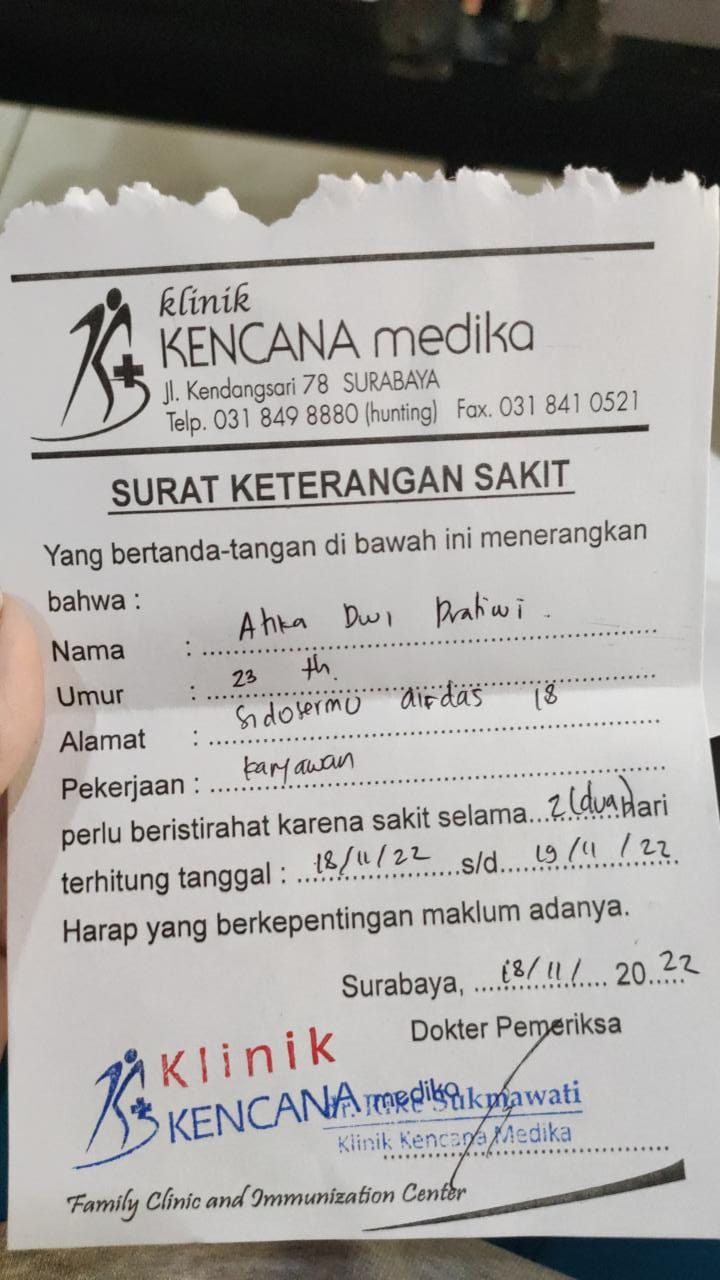 klinik
KENCANA medika
Jl. Kendangsari 78 SURABAYA
Telp. 031 849 8880 (hunting) Fax. 031 841 0521
SURAT KETERANGAN SAKIT
Yang bertanda-tangan di bawah ini menerangkan
bahwa :
Nama : Atika Dwi Pratiwi.
Umur : 23 th.
Alamat : Sidosermo airdas 18
Pekerjaan : karyawan
perlu beristirahat karena sakit selama...2 (dua) Hari
terhitung tanggal : 18/11/22 s/d.... 19/11/22
Harap yang berkepentingan maklum adanya.
Surabaya, 18/11/.... 20.22
Dokter Pemeriksa
Klinik
KENCANA medika
Sukmawati
Klinik Kencana Medika
Family Clinic and Immunization Center